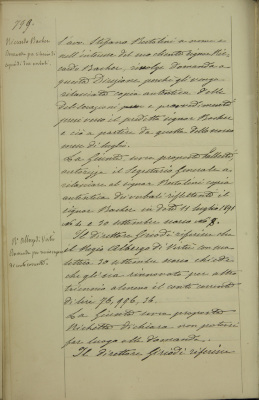 799.
Riccardo Barbee
Domanda per rilascio di
copia di vari verbali.
L'avv. Stefano Bertolini a nome e
nell'interesse del suo cliente signor Ric-
cardo Barbee, rivolge domanda a
questa Direzione perché gli venga
rilasciata copia autentica delle
deliberazioni
il predetto signor Barbee
e ciò a partire da quella dello scorso
mese di luglio.
La Giunta, su proposta
autorizza il Segretario Generale a
rilasciare al signor Bertolini copia
autentica dei verbali riflettenti il
signor Barbee in data 11 luglio 1891
e 20 settembre scorso
Rº Albergo di Virtù
Domanda per
di un
Il Direttore Girodi riferisce che
il Regio Albergo di Virtù con sua
lettera 20 settembre scorso chiede
che gli sia rinnovato per altro
triennio almeno il
di lire 76,996,26.
La Giunta su proposta
Richetta dichiara non potersi
far luogo alla domanda.
Il direttore Girodi riferisce